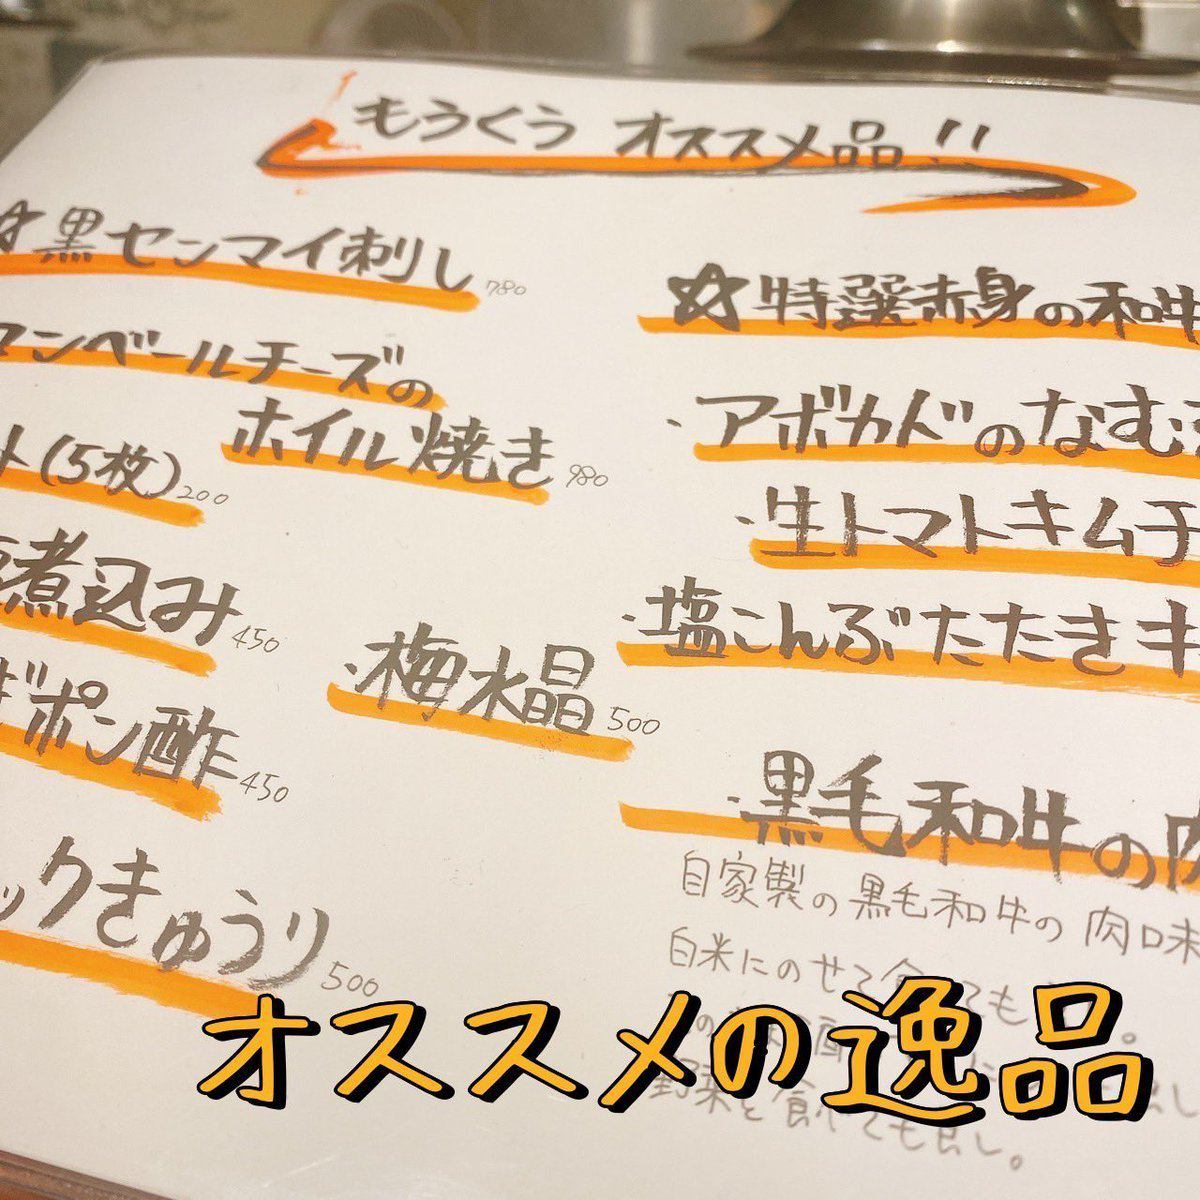 もうくう オススメ品!!
☆黒センマイ刺し 780
マンベールチーズの
ホイル焼き 980
ト(5枚) 200
煮込み 450
ポン酢 450
ックきゅうり 500
・梅水晶 500
☆特選赤身の和牛
・アボカドのなむ
・生トマトキムチ
・塩こんぶたたきキ
・黒毛和牛の肉
自家製の黒毛和牛の肉味
白米にのせて食べても
野菜と食べても良し。
オススメの逸品